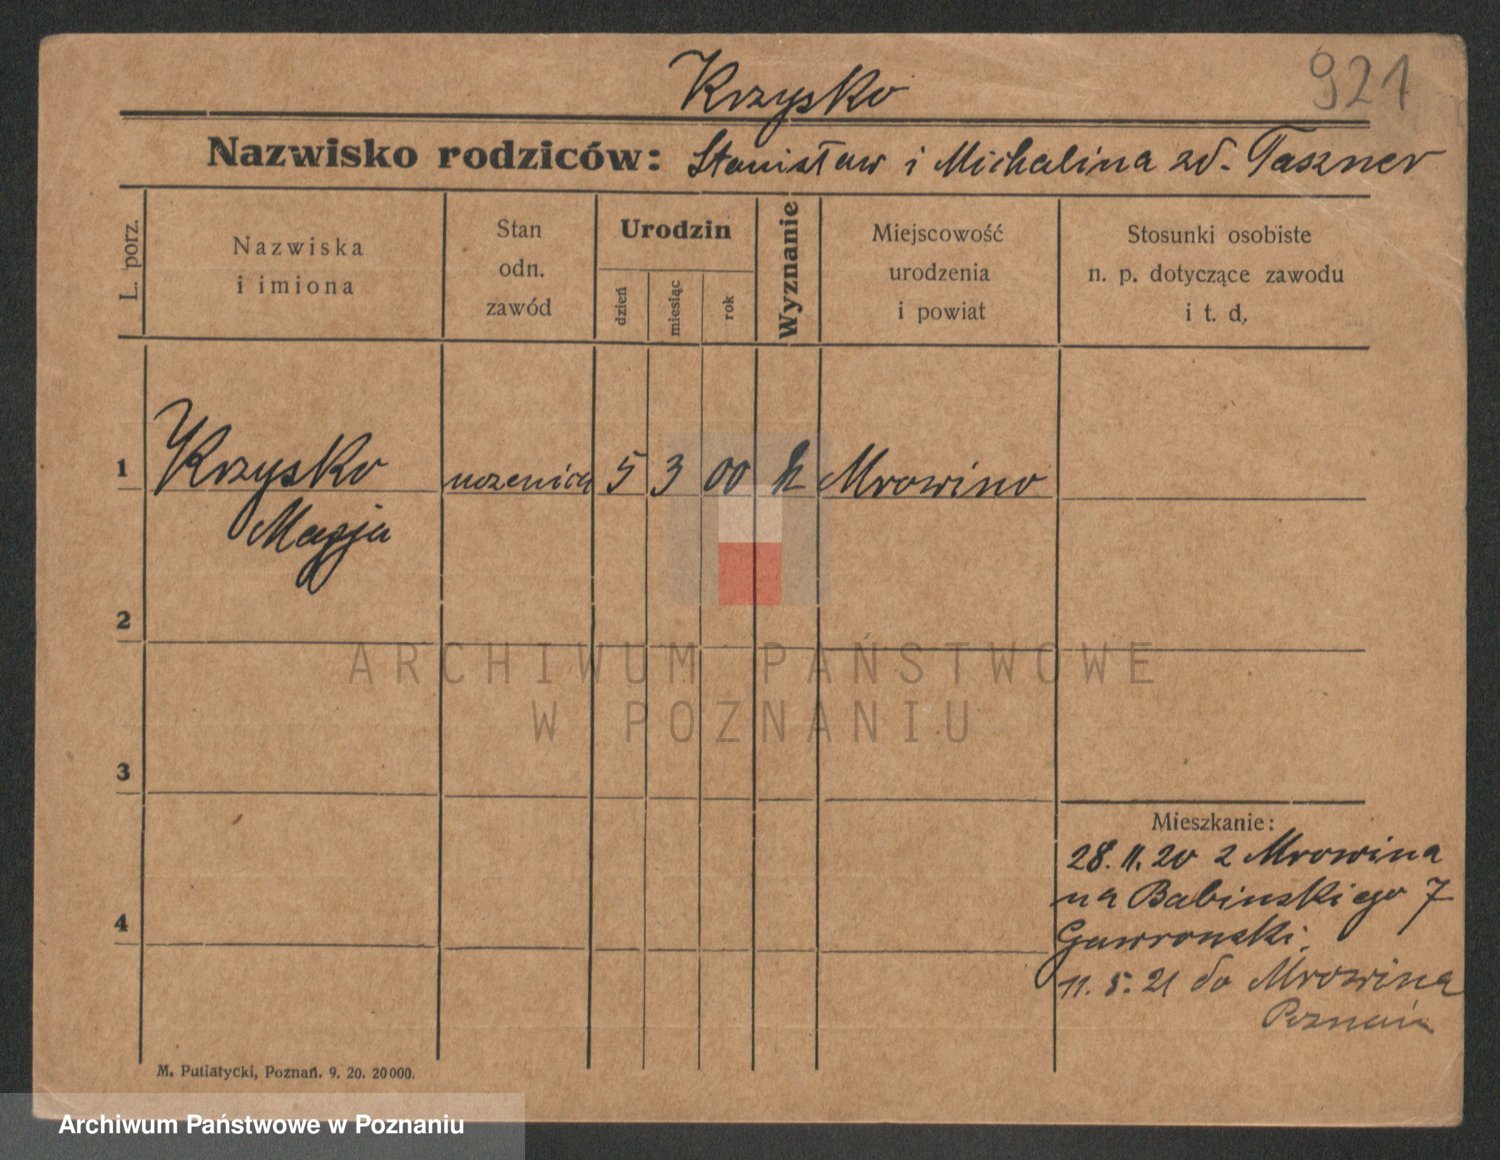 921
Krzysko
Nazwisko rodziców: Stanisław i Michalina zd. Taszner
L. porz.
Nazwiska
i imiona
Stan
odn.
zawód
Urodzin
dzień
miesiąc
rok
Wyznanie
Miejscowość
urodzenia
i powiat
Stosunki osobiste
n. p. dotyczące zawodu
i t. d.
1 Krzysko uczenica 5 3 00 k Mrowino
Marja
2
ARCHIWUM PAŃSTWOWE
W POZNANIU
3
Mieszkanie:
28.11.20 z Mrowina
na Babinskiego 7
4
Gawronski.
11.5.21 do Mrowina
Poznań
M. Putiatycki, Poznań. 9. 20. 20000.
Archiwum Państwowe w Poznaniu